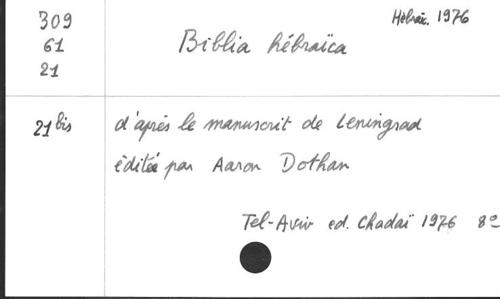 309
61
21
Hébraïc. 1976
Biblia hébraïca
21 bis
d'après le manuscrit de Leningrad
éditée par Aaron Dothan
Tel-Aviv ed. Chadaï 1976 8º